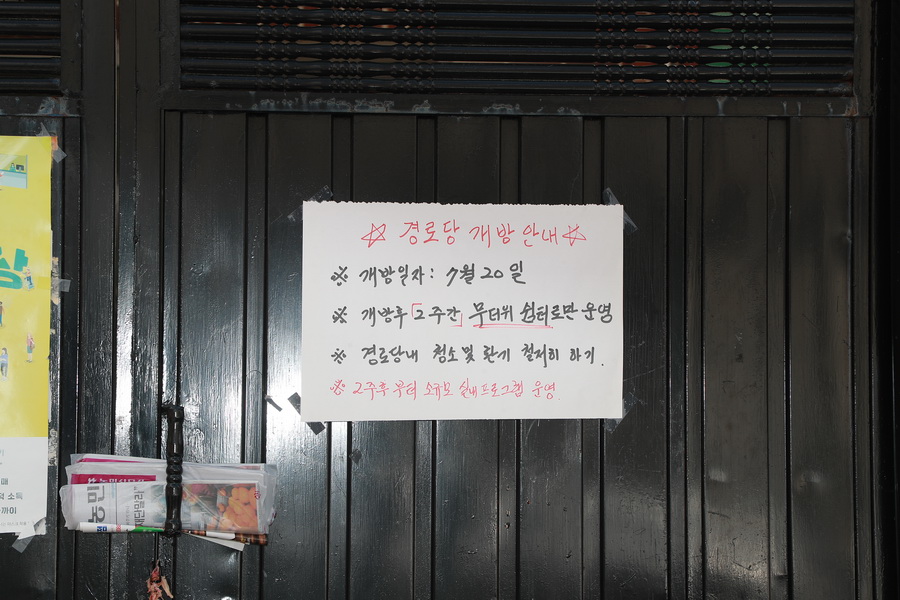 ☆ 경로당 개방 안내 ☆
※ 개방일자 : 7월 20일
※ 개방후 2주간 무더위 쉼터로만 운영
※ 경로당내 청소 및 환기 철저히 하기.
※ 2주후 부터 소규모 실내프로그램 운영.
상
매
소득
까이
농민